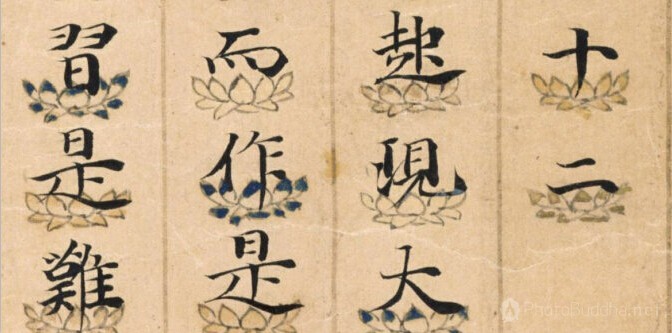 十二
現大
而作是
習是難
PhotoBuddha.net